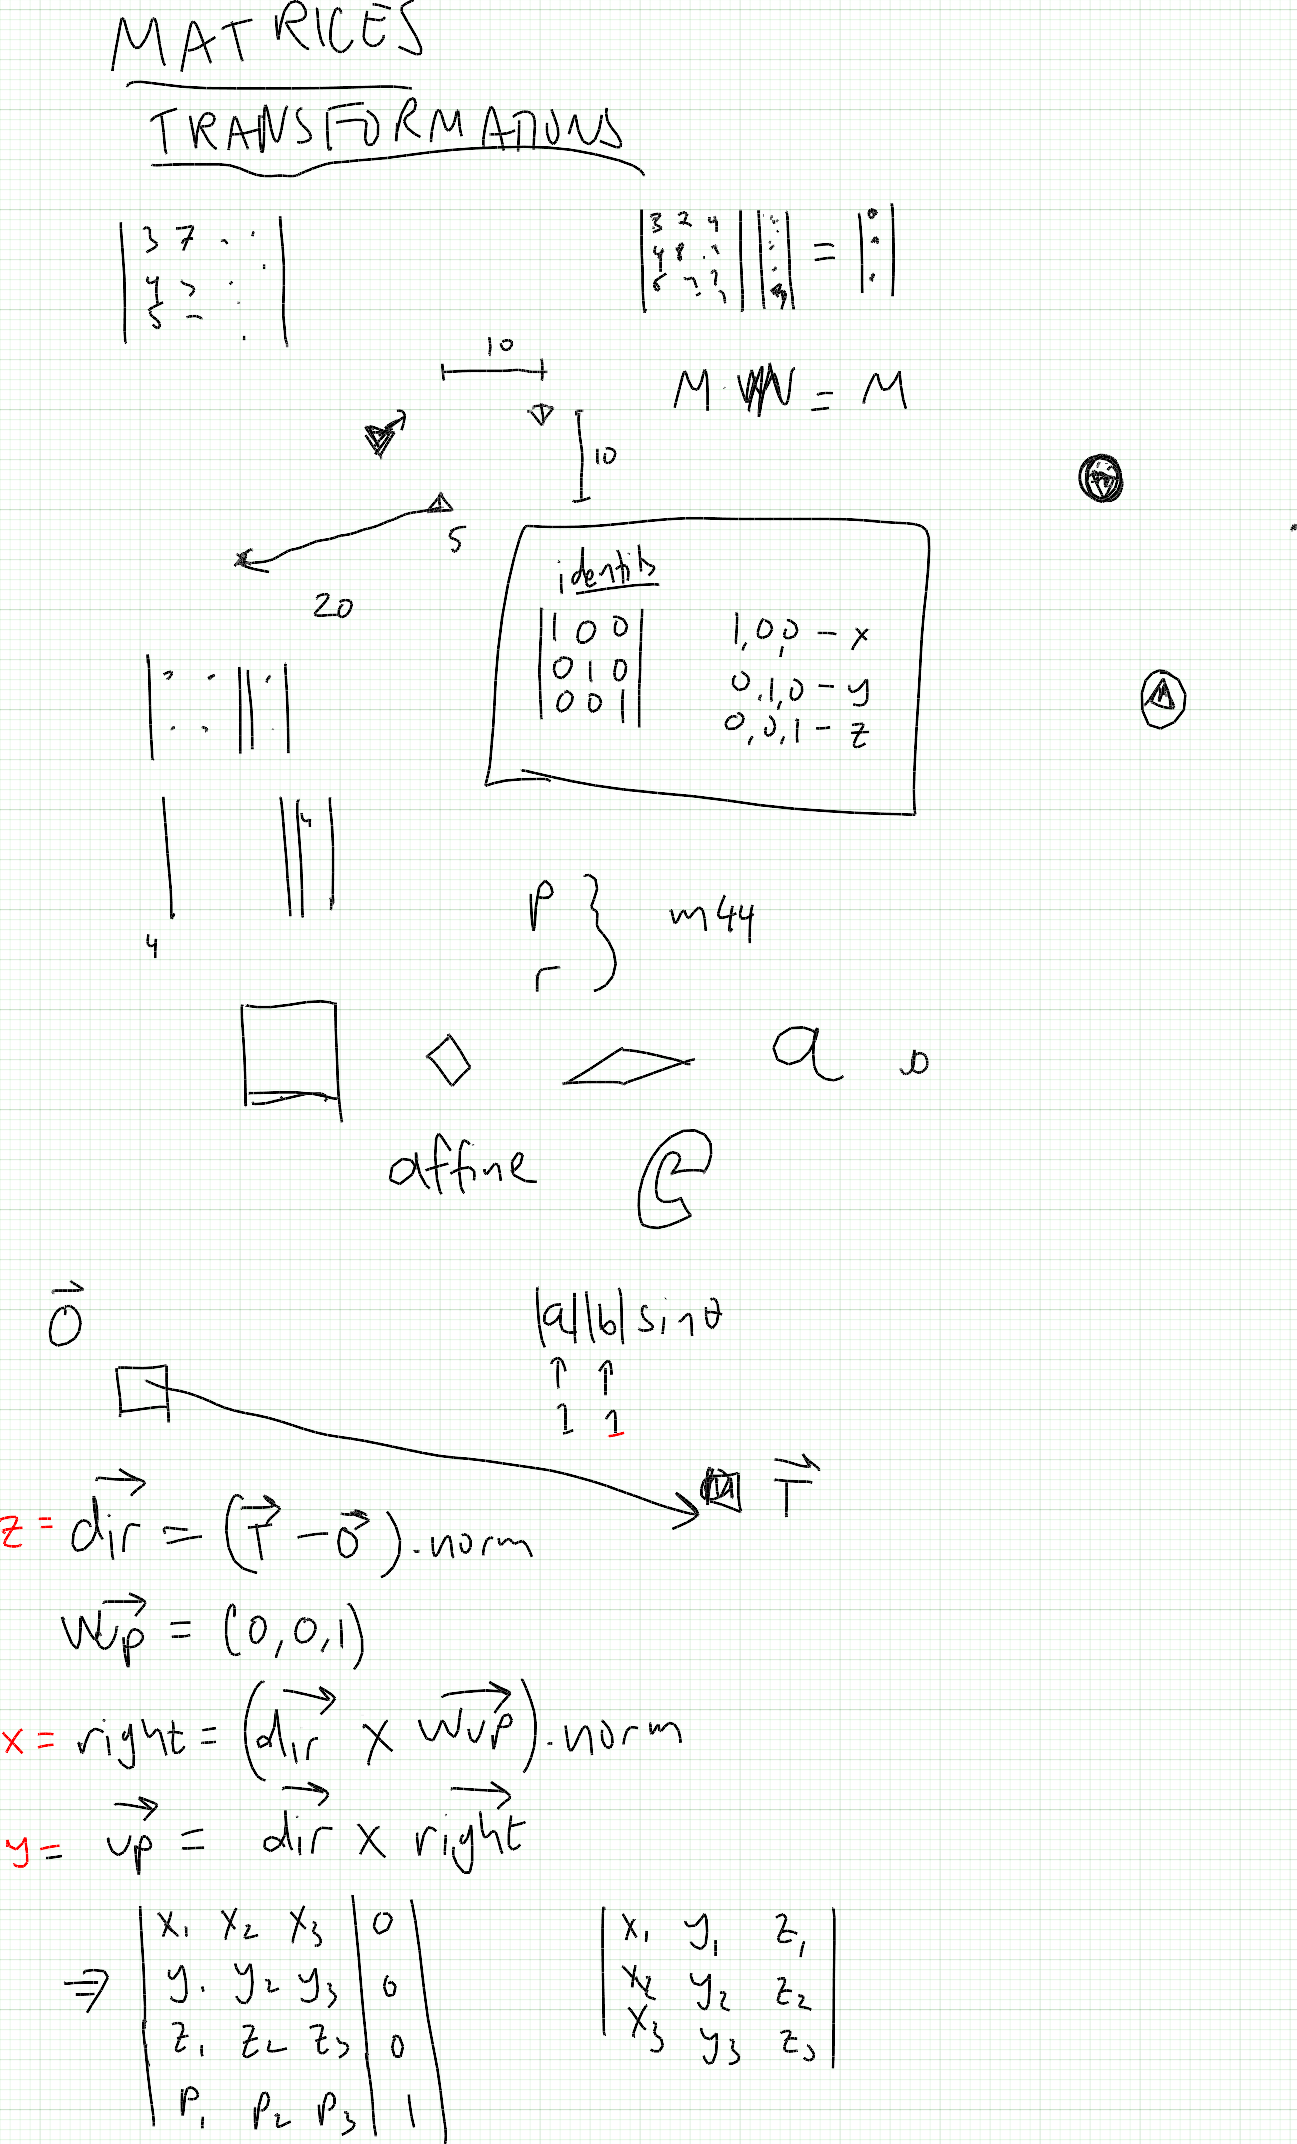 MATRICES
TRANSFORMATIONS
3 7
4
5
3 2 4
4 8
=
10
M N = M
10
5
20
identity
1 0 0
0 1 0
0 0 1
1,0,0 - x
0,1,0 - y
0,0,1 - z
4
4
p
r
} m44
a
affine
O
|a||b| sinθ
↑ ↑
1 1
T
z = dir = (T - O).norm
Wup = (0,0,1)
x = right = (dir x Wup).norm
y = up = dir x right
⇒
x₁ x₂ x₃ 0
y₁ y₂ y₃ 0
z₁ z₂ z₃ 0
P₁ P₂ P₃ 1
x₁ y₁ z₁
x₂ y₂ z₂
x₃ y₃ z₃